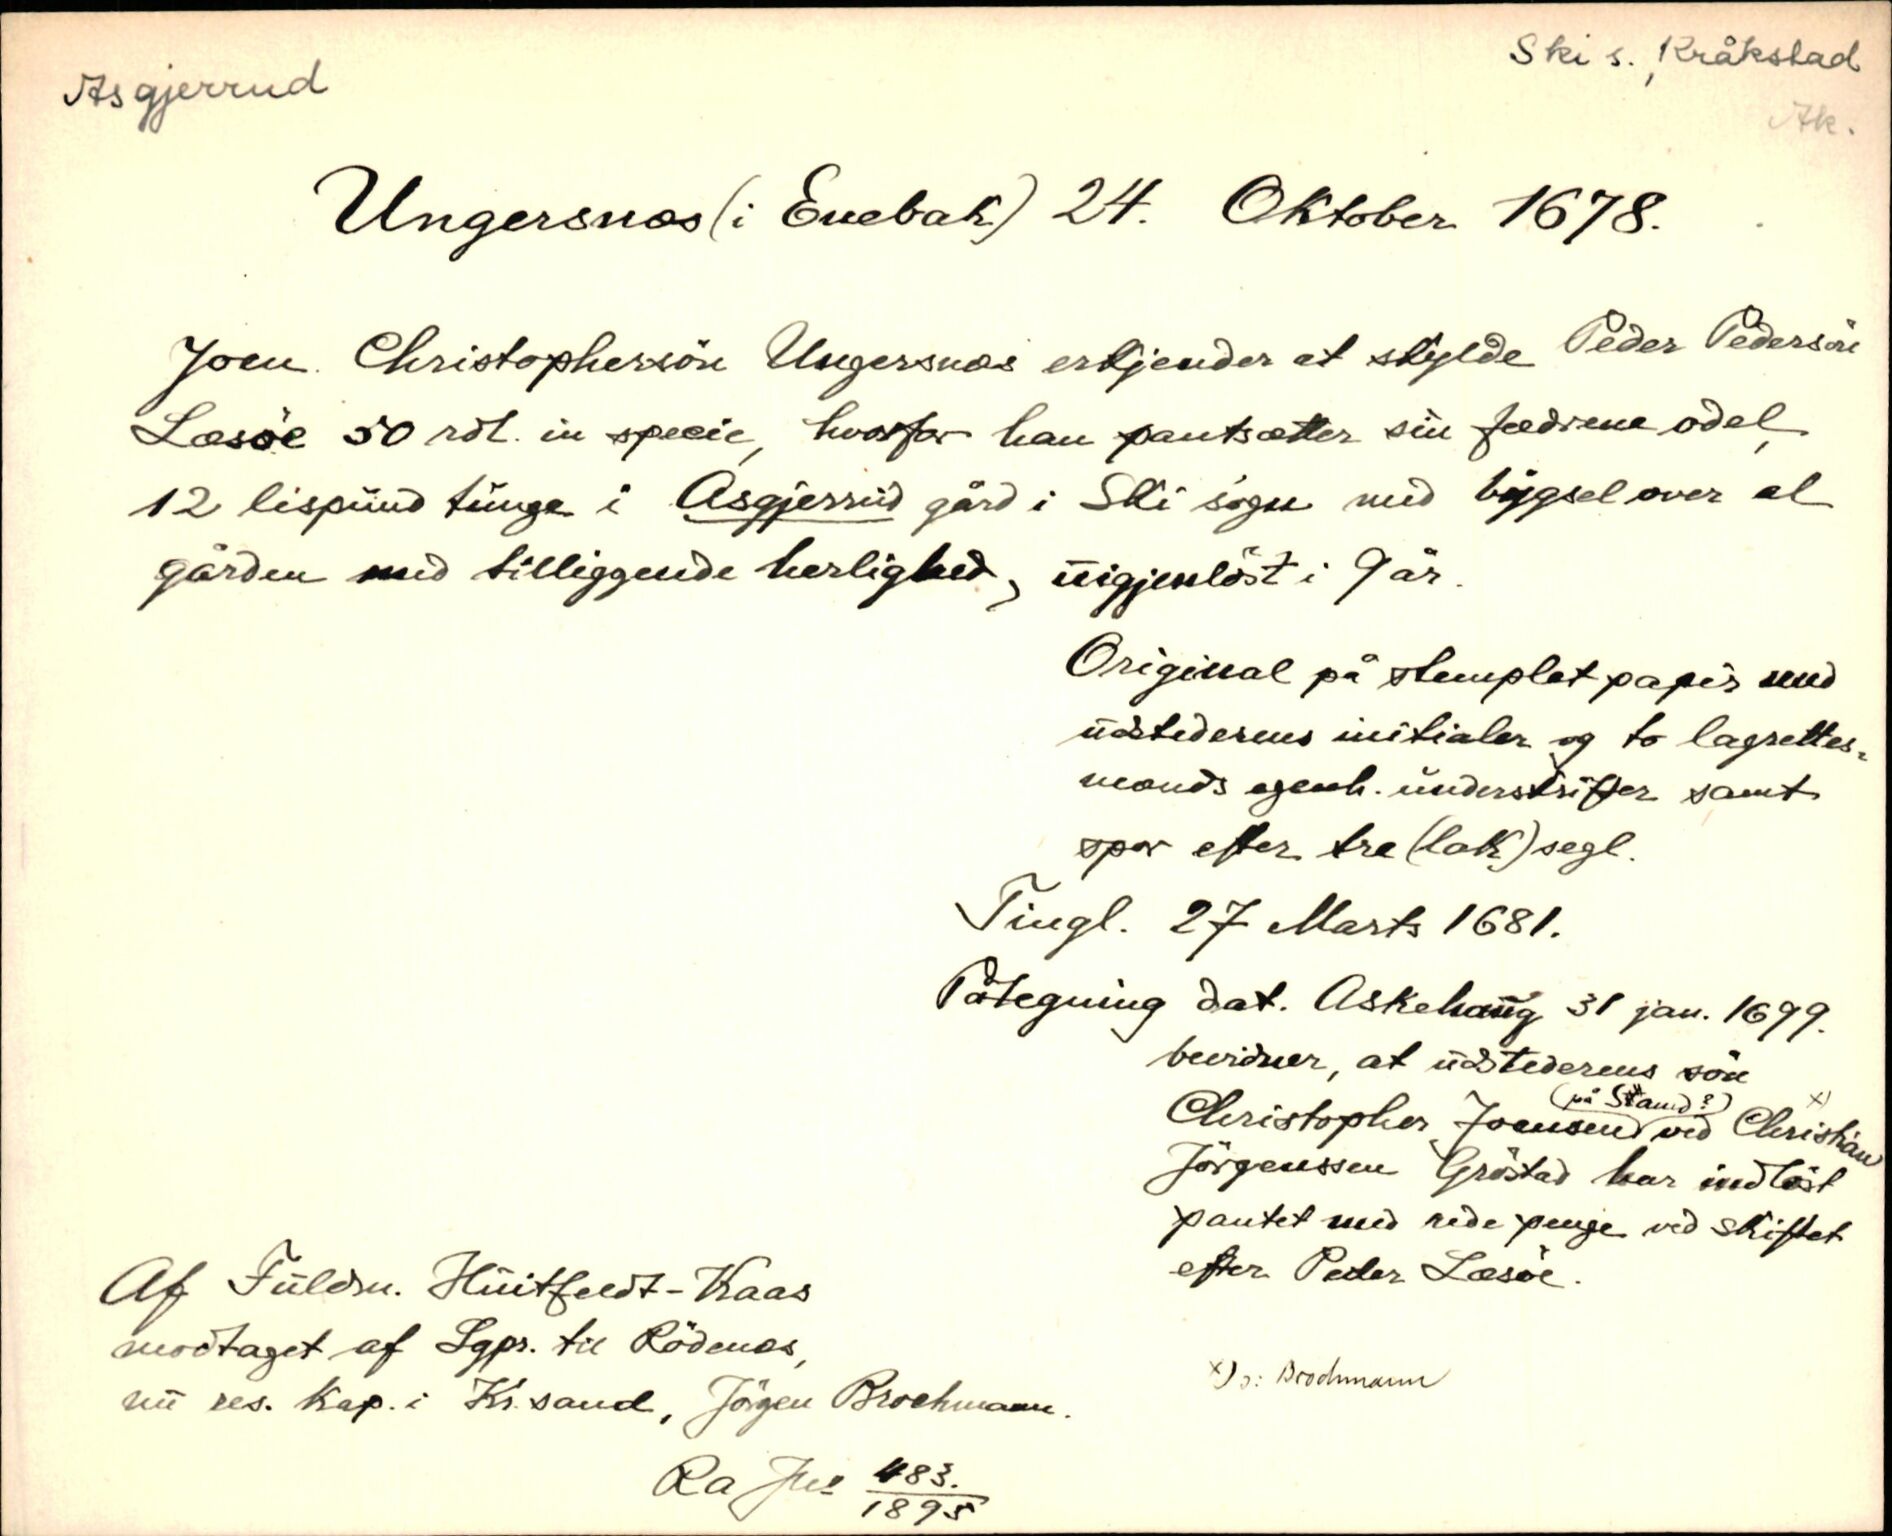 Asgjerrud
Ski s., Kråkstad
Ak.
Ungersnæs (i Enebak) 24. Oktober 1678.
Joen Christophersön Ungersnæs erkjender at skylde Peder Pedersön
Læsöe 50 rdl. in specie, hvorfor han pantsætter sin fædrene odel,
12 lispund tunge i Asgjerrud gård i Ski sogn med bygsel over al
gården med tilliggende herlighed, uigjenlöst i 9 år.
Original på stemplet papir med
udstederens initialer og to lagrettes-
mænds egenh. underskrifter samt
spor efter tre (lak) segl.
Tingl. 27 Marts 1681.
Påtegning dat. Askehaug 31 jan. 1699.
bevidner, at udstederens sön
(på Stamd?)
Christopher Joensen ved Christian x)
Jörgenssen Gröstad har indlöst
pantet med rede penge ved skiftet
efter Peder Læsöe.
Af Fuldm. Huitfeldt-Kaas
modtaget af Sgpr. til Rödenæs,
nu res. Kap. i Kr.sand, Jörgen Brochmann.
x) ɔ: Brochmann
Ra Jno 483.
1895